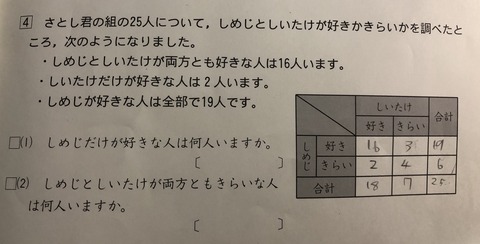 4 さとし君の組の25人について，しめじとしいたけが好きかきらいかを調べたと
ころ，次のようになりました。
・しめじとしいたけが両方とも好きな人は16人います。
・しいたけだけが好きな人は2人います。
・しめじが好きな人は全部で19人です。
□(1) しめじだけが好きな人は何人いますか。
〔 〕
□(2) しめじとしいたけが両方ともきらいな人
は何人いますか。
〔 〕
しいたけ 合計
好き きらい
しめじ 好き 16 3 19
きらい 2 4 6
合計 18 7 25